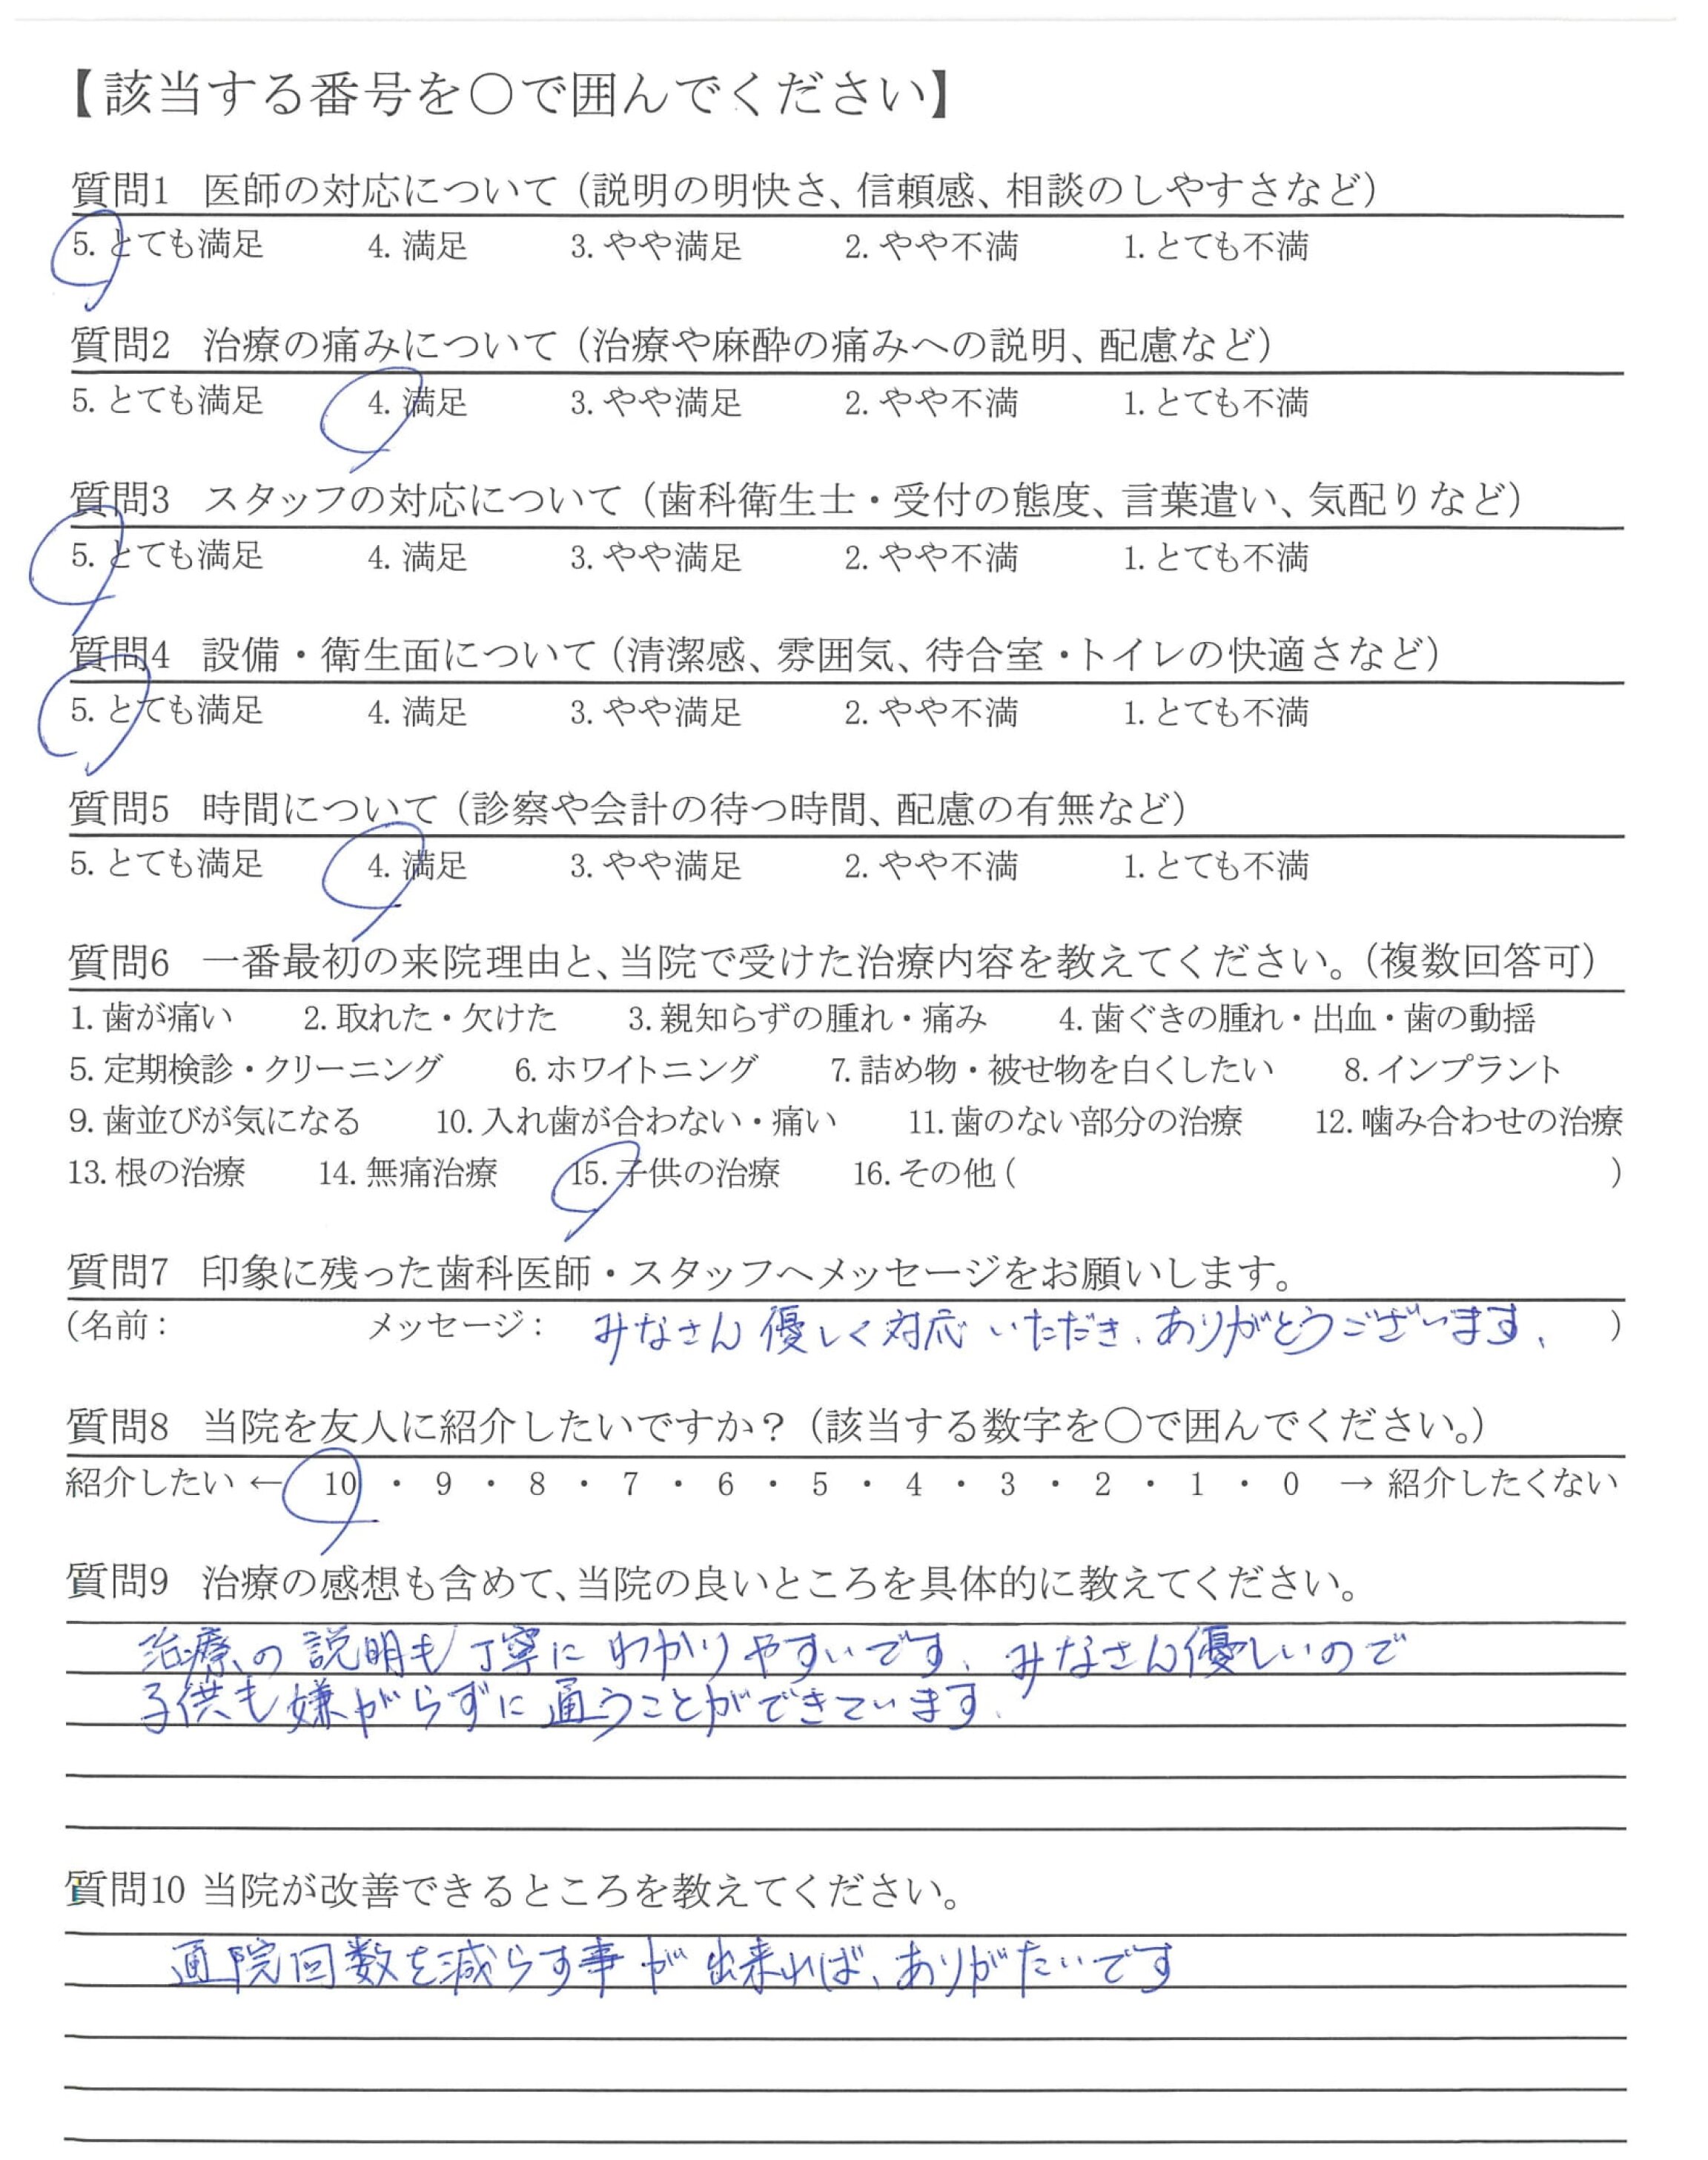 【該当する番号を○で囲んでください】
質問1 医師の対応について（説明の明快さ、信頼感、相談のしやすさなど）
5. とても満足 4. 満足 3. やや満足 2. やや不満 1. とても不満
質問2 治療の痛みについて（治療や麻酔の痛みへの説明、配慮など）
5. とても満足 4. 満足 3. やや満足 2. やや不満 1. とても不満
質問3 スタッフの対応について（歯科衛生士・受付の態度、言葉遣い、気配りなど）
5. とても満足 4. 満足 3. やや満足 2. やや不満 1. とても不満
質問4 設備・衛生面について（清潔感、雰囲気、待合室・トイレの快適さなど）
5. とても満足 4. 満足 3. やや満足 2. やや不満 1. とても不満
質問5 時間について（診察や会計の待つ時間、配慮の有無など）
5. とても満足 4. 満足 3. やや満足 2. やや不満 1. とても不満
質問6 一番最初の来院理由と、当院で受けた治療内容を教えてください。（複数回答可）
1. 歯が痛い 2. 取れた・欠けた 3. 親知らずの腫れ・痛み 4. 歯ぐきの腫れ・出血・歯の動揺
5. 定期検診・クリーニング 6. ホワイトニング 7. 詰め物・被せ物を白くしたい 8. インプラント
9. 歯並びが気になる 10. 入れ歯が合わない・痛い 11. 歯のない部分の治療 12. 噛み合わせの治療
13. 根の治療 14. 無痛治療 15. 子供の治療 16. その他（ ）
質問7 印象に残った歯科医師・スタッフへメッセージをお願いします。
（名前： メッセージ： みなさん優しく対応いただき、ありがとうございます、 ）
質問8 当院を友人に紹介したいですか？（該当する数字を○で囲んでください。）
紹介したい ← 10 ・ 9 ・ 8 ・ 7 ・ 6 ・ 5 ・ 4 ・ 3 ・ 2 ・ 1 ・ 0 → 紹介したくない
質問9 治療の感想も含めて、当院の良いところを具体的に教えてください。
治療の説明も丁寧にわかりやすいです、みなさん優しいので
子供も嫌がらずに通うことができています、
質問10 当院が改善できるところを教えてください。
通院回数を減らす事が出来れば、ありがたいです